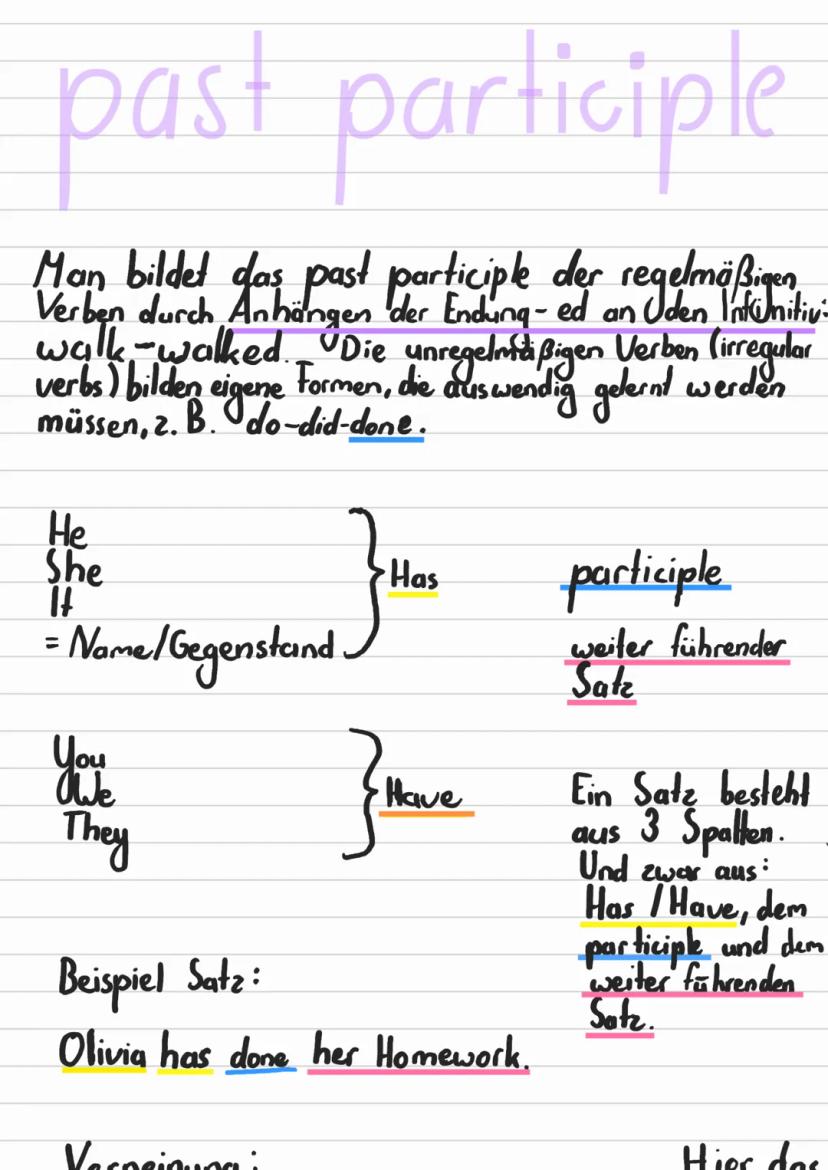 past participle
Man bildet das past participle der regelmäßigen
Verben durch Anhängen der Endung - ed an den Infinitiv:
walk - walked. Die unregelmäßigen Verben (irregular
verbs) bilden eigene Formen, die auswendig gelernt werden
müssen, z. B. do-did-done.
He
She
It
= Name/Gegenstand
Has
participle
weiter führender
Satz
You
We
They
Have
Ein Satz besteht
aus 3 Spalten.
Und zwar aus:
Has / Have, dem
participle und dem
weiter führenden
Satz.
Beispiel Satz:
Olivia has done her Homework.
Verneinung:
Hier das